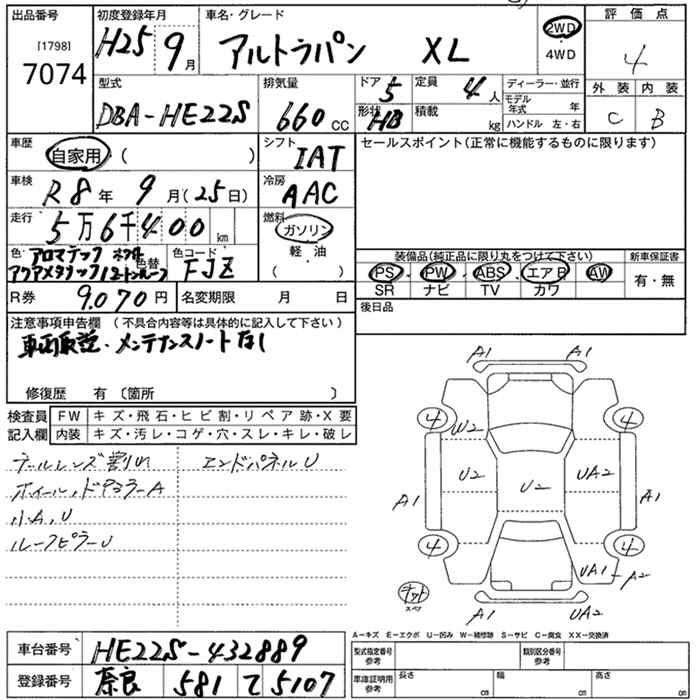 出品番号 初度登録年月 車名・グレード 評価点
[1798]
7074
H25 9月 アルトラパン XL 2WD・4WD 4
外装 内装
C B
型式 排気量 ドア 定員 ディーラー・並行
DBA-HE22S 660cc 5 4人
形状 積載 モデル年式 年
HB kg ハンドル 左・右
車歴 シフト セールスポイント(正常に機能するものに限ります)
自家用・( ) IAT
車検 冷房
R8年 9月(25日) AAC
走行 燃料
5万6千400km ガソリン
軽・油
( )
色・ 色替 色コード
アロマテック
アクアメタリック12トンルーフ FJZ
装備品(純正品に限り丸をつけて下さい) 新車保証書
PS・PW・ABS・エアB・AW 有・無
SR ナビ TV カワ
R券 9,070円 名変期限 月 日
後日品
注意事項申告欄 (不具合内容等は具体的に記入して下さい)
車両取説・メンテナンスノートなし
修復歴 有 〔箇所 〕
検査員記入欄
FW キズ・飛石・ヒビ割・リペア跡・X要
内装 キズ・汚レ・コゲ・穴・スレ・キレ・破レ
テールレンズ割れ エンドパネルU
ホイール、ドアミラーA
小A,U
ルーフピラーU
A1 A1
4 4
W2
U2 UA2
U2
A1 A1
4 4
UA1-A2
スペア
A1 UA2
A-キズ E-エクボ U-凹み W-補修跡 S-サビ C-腐食 XX-交換済
車台番号 HE22S-432889
登録番号 奈良 581 て 5107
型式指定番号 参考 類別区分番号 参考
車庫証明用 参考 長さ cm 幅 cm 高さ cm